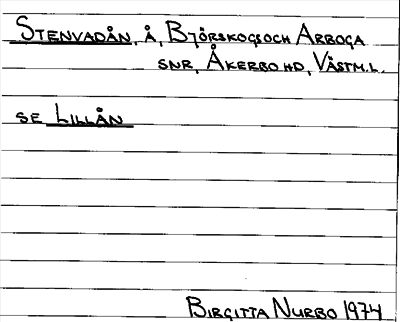 STENVADÅN, Å, BJÖRSKOGS OCH ARBOGA
SNR, ÅKERBO HD, VÄSTM.L.
SE LILLÅN
BIRGITTA NURBO 1974